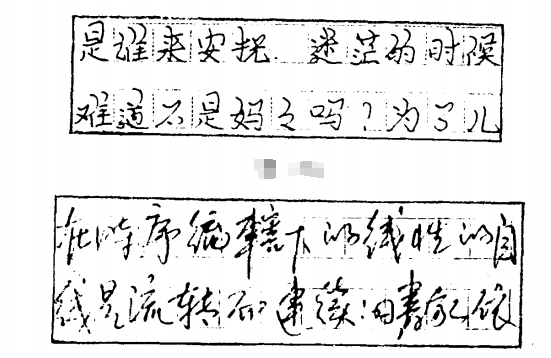 是谁来安抚 迷茫的时候
难道不是妈々吗？为了儿
在时序编辖下的线性的自
线是流转而连续:由